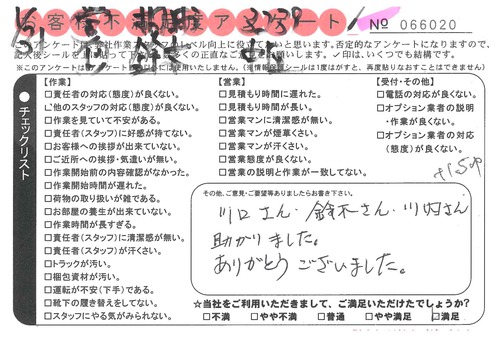 お客様不満度アンケート
№ 066020
このアンケートは、弊社作業スタッフのレベル向上に役立てたいと思います。否定的なアンケートになりますので、
記入後シールを上に貼って下さい。多くの正直なご意見をお願いします。✓印は、いくつでも結構です。
※このアンケートは、個人情報保護シールは1度はがすと、再度貼りなおすことはできません)
チェックリスト
【作業】
□責任者の対応(態度)が良くない。
□他のスタッフの対応(態度)が良くない。
□作業を見ていて不安がある。
□責任者(スタッフ)に好感が持てない。
□お客様への挨拶が出来ていない。
□ご近所への挨拶・気遣いが無い。
□作業開始前の内容確認がなかった。
□作業開始時間が遅れた。
□荷物の取り扱いが雑である。
□お部屋の養生が出来ていない。
□作業時間が長すぎる。
□責任者(スタッフ)に清潔感が無い。
□責任者(スタッフ)が汗くさい。
□トラックが汚い。
□梱包資材が汚い。
□運転が不安(下手)である。
□靴下の履き替えをしてない。
□スタッフにやる気がみられない。
【営業】
□見積もり時間に遅れた。
□見積もり時間が長い。
□営業マンに清潔感が無い。
□営業マンが煙草くさい。
□営業マンが汗くさい。
□営業態度が良くない。
□営業の説明と作業が一致してない。
【受付・その他】
□電話の対応が良くない。
□オプション業者の説明
・作業が良くない。
□オプション業者の対応
(態度)が良くない。
その他、ご意見・ご要望等ありましたらお書き下さい。
川口さん・鈴木さん・川内さん
助かりました。
ありがとうございました。
☆当社をご利用いただきまして、ご満足いただけたでしょうか?
□不満 □やや不満 □普通 □やや満足 □満足